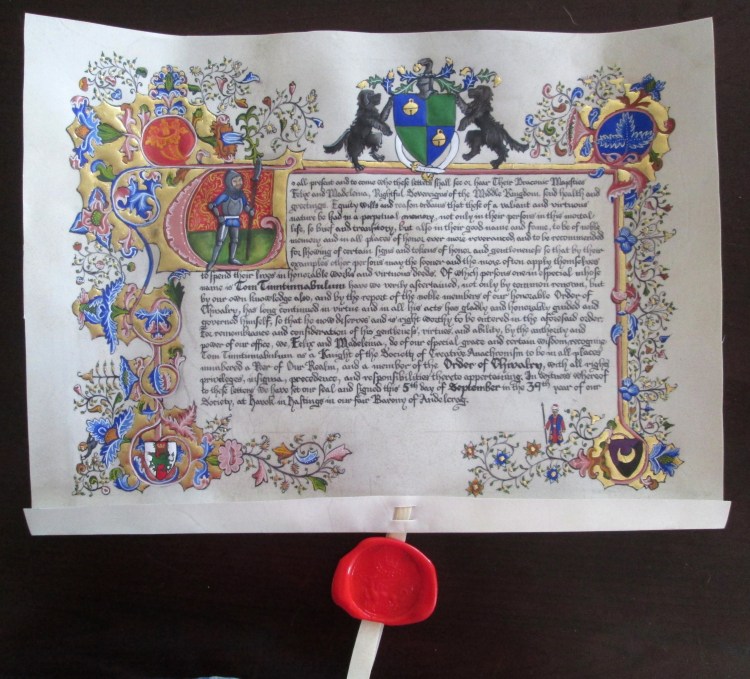 To all present and to come who these letters shall see or hear Their Draconic Majesties
Felix and Madeleina, Rightful Sovereigns of the Middle Kingdom, send health and
greetings. Equity wills and reason ordains that those of a valiant and virtuous
nature be had in a perpetual memory, not only in their persons in this mortal
life, so brief and transitory, but also in their good name and fame, to be of noble
memory and in all places of honor ever more reverenced, and to be recommended
for showing of certain signs and tokens of honor and gentleness so that by their
examples other persons may the sooner and the more often apply themselves
to spend their lives in honorable works and virtuous deeds. Of which persons one in special whose
name is Tom Tinntinnabulum have we verily ascertained, not only by common renown, but
by our own knowledge also, and by the report of the noble members of our honorable Order of
Chivalry, has long continued in virtue and in all his acts has gladly and honorably guided and
governed himself, so that he now deserves and is right worthy to be entered in the aforesaid order.
For remembrance and consideration of his gentleness, virtues, and ability, by the authority and
power of our office, we, Felix and Madeleina, do of our especial grace and certain wisdom, recognize
Tom Tinntinabulum as a Knight of the Society of Creative Anachronism to be in all places
numbered a Peer of Our Realm, and a member of the Order of Chivalry, with all rights
privileges, insignia, precedence, and responsibilities thereto appertaining. In witness whereof
to these letters We have set our Seal and signed the 5th day of September in the 39th year of our
Society, at Havok in Hastings in our fair Barony of Andelcrag.